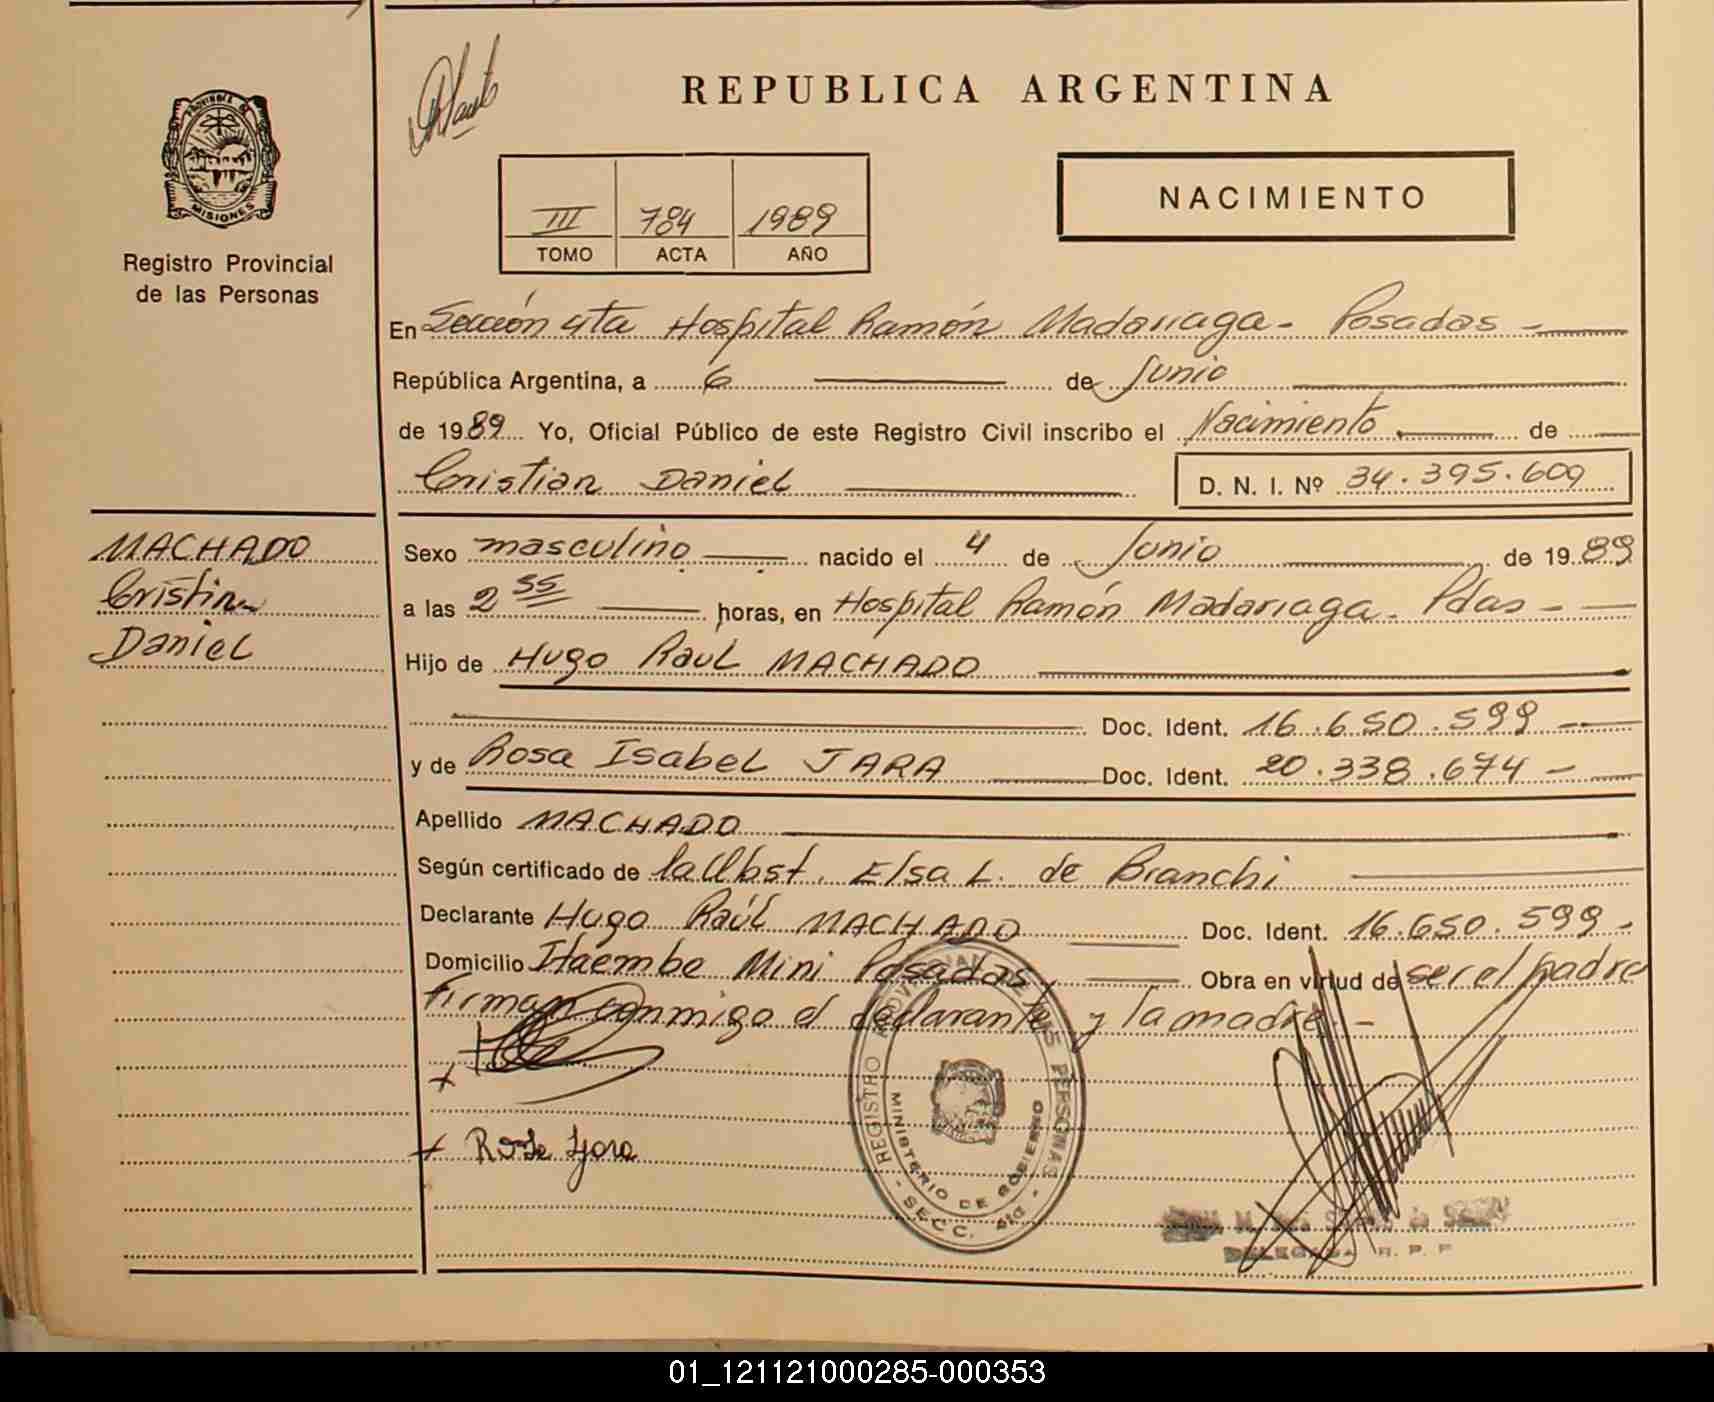 REPUBLICA ARGENTINA
PROVINCIA DE
MISIONES
Registro Provincial
de las Personas
III 784 1989
TOMO ACTA AÑO
NACIMIENTO
En Sección 4ta Hospital Ramón Madariaga - Posadas -
República Argentina, a 6 de Junio
de 1989 Yo, Oficial Público de este Registro Civil inscribo el Nacimiento de
Cristian Daniel D. N. I. Nº 34.395.609
MACHADO
Cristian
Daniel
Sexo masculino nacido el 4 de Junio de 1989
a las 2 55 horas, en Hospital Ramón Madariaga - Pdas -
Hijo de Hugo Raul MACHADO
Doc. Ident. 16.650.599 -
y de Rosa Isabel JARA Doc. Ident. 20.338.674 -
Apellido MACHADO
Según certificado de la Obst. Elsa L. de Branchi
Declarante Hugo Raúl MACHADO Doc. Ident. 16.650.599 -
Domicilio Itaembe Mini Posadas Obra en virtud de ser el padre
Firman conmigo el declarante y la madre. -
REGISTRO PROVINCIAL DE LAS PERSONAS
MINISTERIO DE GOBIERNO
- SECC. 4ta -
DELEGADA R. P. P.
01_121121000285-000353